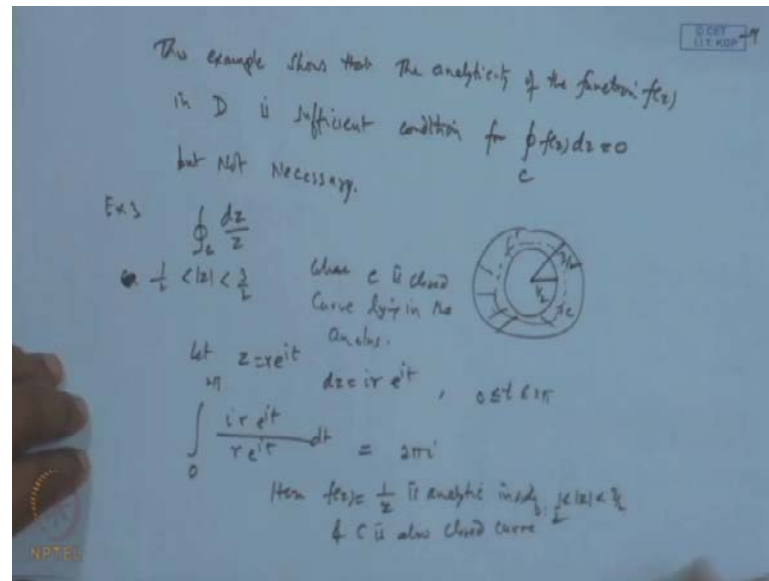 © CET
I.I.T. KGP
This example shows that the analyticity of the function f(z)
in D is sufficient condition for ∮ f(z) dz = 0
C
but Not Necessary.
Ex 3 ∮ dz/z
C
1/2 < |z| < 3/2 where C is closed
curve lying in the
3/2
1/2
C
Let z = re^{it} dz = ir e^{it}, 0 ≤ t ≤ 2π
∫_0^{2π} ir e^{it} / r e^{it} dt = 2πi
Here f(z) = 1/z is analytic inside 1/2 < |z| < 3/2
& C is also closed curve
NPTEL